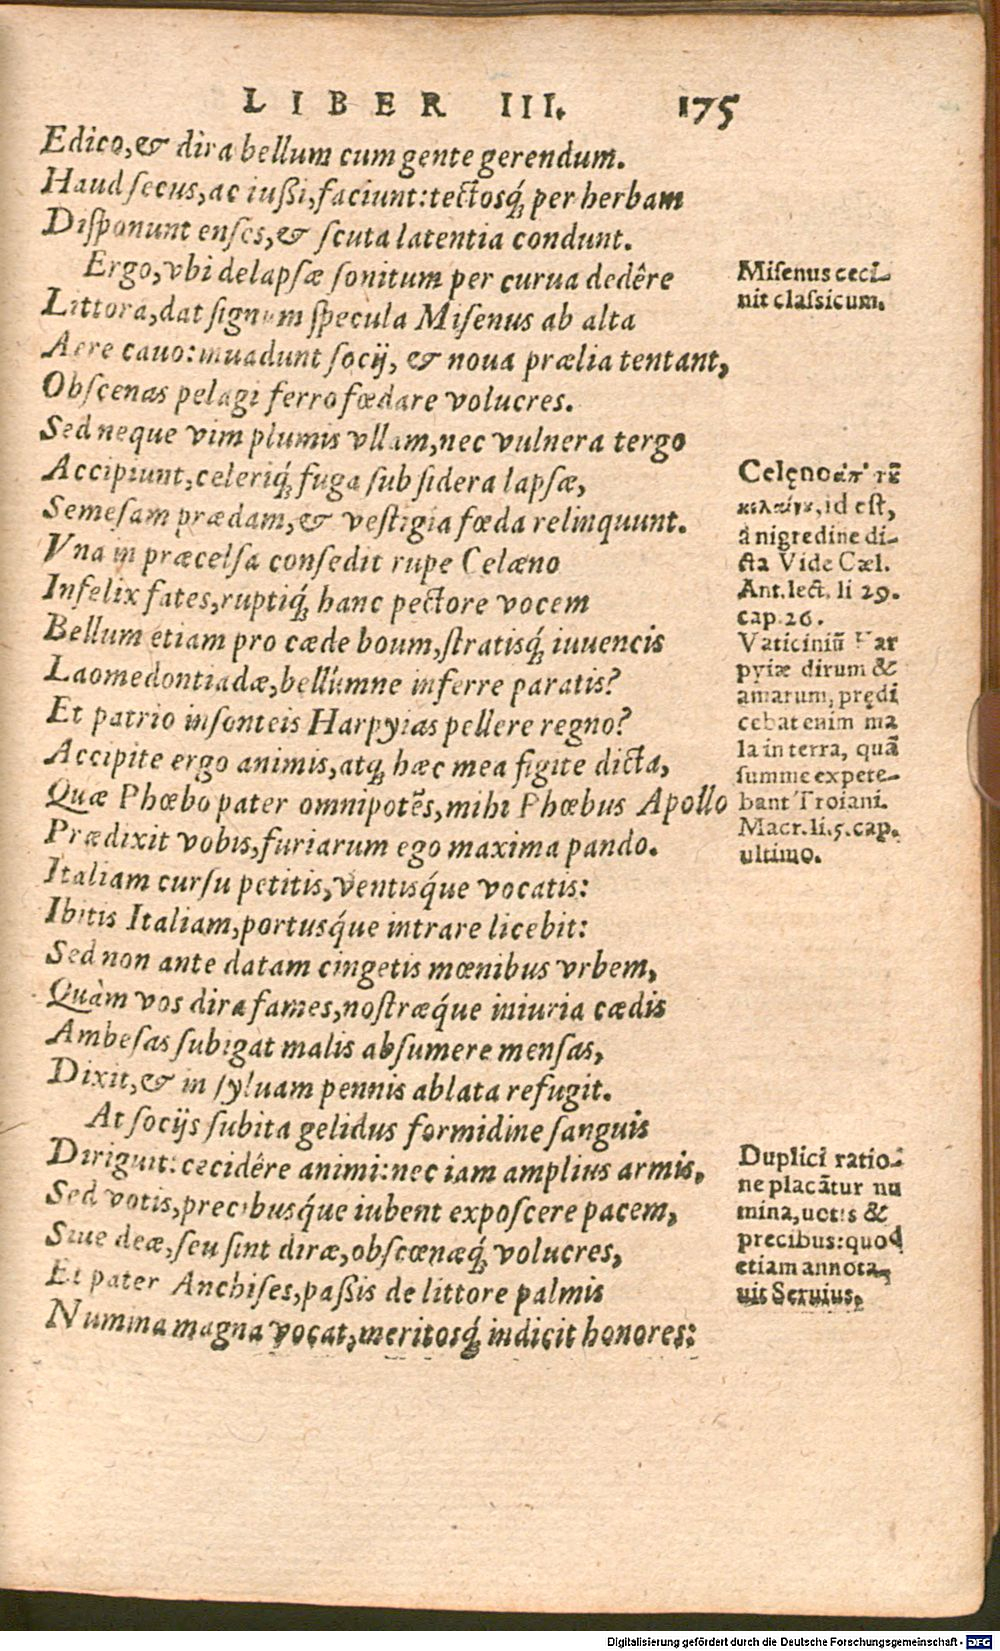 LIBER III. 175
Edico, & dira bellum cum gente gerendum.
Haud secus, ac iußi, faciunt: tectosq́; per herbam
Disponunt enses, & scuta latentia condunt.
Ergo, vbi delapsæ sonitum per curua dedêre
Littora, dat signum specula Misenus ab alta
Aere cauo: inuadunt socij, & noua prælia tentant,
Obscenas pelagi ferro fœdare volucres.
Sed neque vim plumis vllam, nec vulnera tergo
Accipiunt, celeriq́; fuga sub sidera lapsæ,
Semesam prædam, & vestigia fœda relinquunt.
Vna in præcelsa consedit rupe Celæno
Infelix fates, ruptiq́; hanc pectore vocem
Bellum etiam pro cæde boum, stratisq́; iuuencis
Laomedontiadæ, bellúmne inferre paratis?
Et patrio insonteis Harpyias pellere regno?
Accipite ergo animis, atq; hæc mea figite dicta,
Quæ Phœbo pater omnipotẽs, mihi Phœbus Apollo
Prædixit vobis, furiarum ego maxima pando.
Italiam cursu petitis, ventisq́ue vocatis:
Ibitis Italiam, portusq́ue intrare licebit:
Sed non ante datam cingetis mœnibus vrbem,
Quàm vos dira fames, nostræq́ue iniuria cædis
Ambesas subigat malis absumere mensas,
Dixit, & in syluam pennis ablata refugit.
At socijs subita gelidus formidine sanguis
Diriguit: cecidêre animi: nec iam amplius armis,
Sed votis, precibusq́ue iubent exposcere pacem,
Siue deæ, seu sint diræ, obscœnæq́; volucres,
Et pater Anchises, paßis de littore palmis
Numina magna vocat, meritosq́; indicit honores:
Misenus ceci-
nit classicum.
Celęno ἀπ' τȣ͂
κελαίνȣ, id est,
à nigredine di-
cta Vide Cæl.
Ant. lect. li 29.
cap. 26.
Vaticiniũ Har
pyiæ dirum &
amarum, prędi
cebat enim ma
la in terra, quã
summe expete-
bant Troiani.
Macr. li. 5. cap.
ultimo.
Duplici ratio-
ne placãtur nu
mina, uotis &
precibus: quod
etiam annota-
uit Seruius.
Digitalisierung gefördert durch die Deutsche Forschungsgemeinschaft - DFG